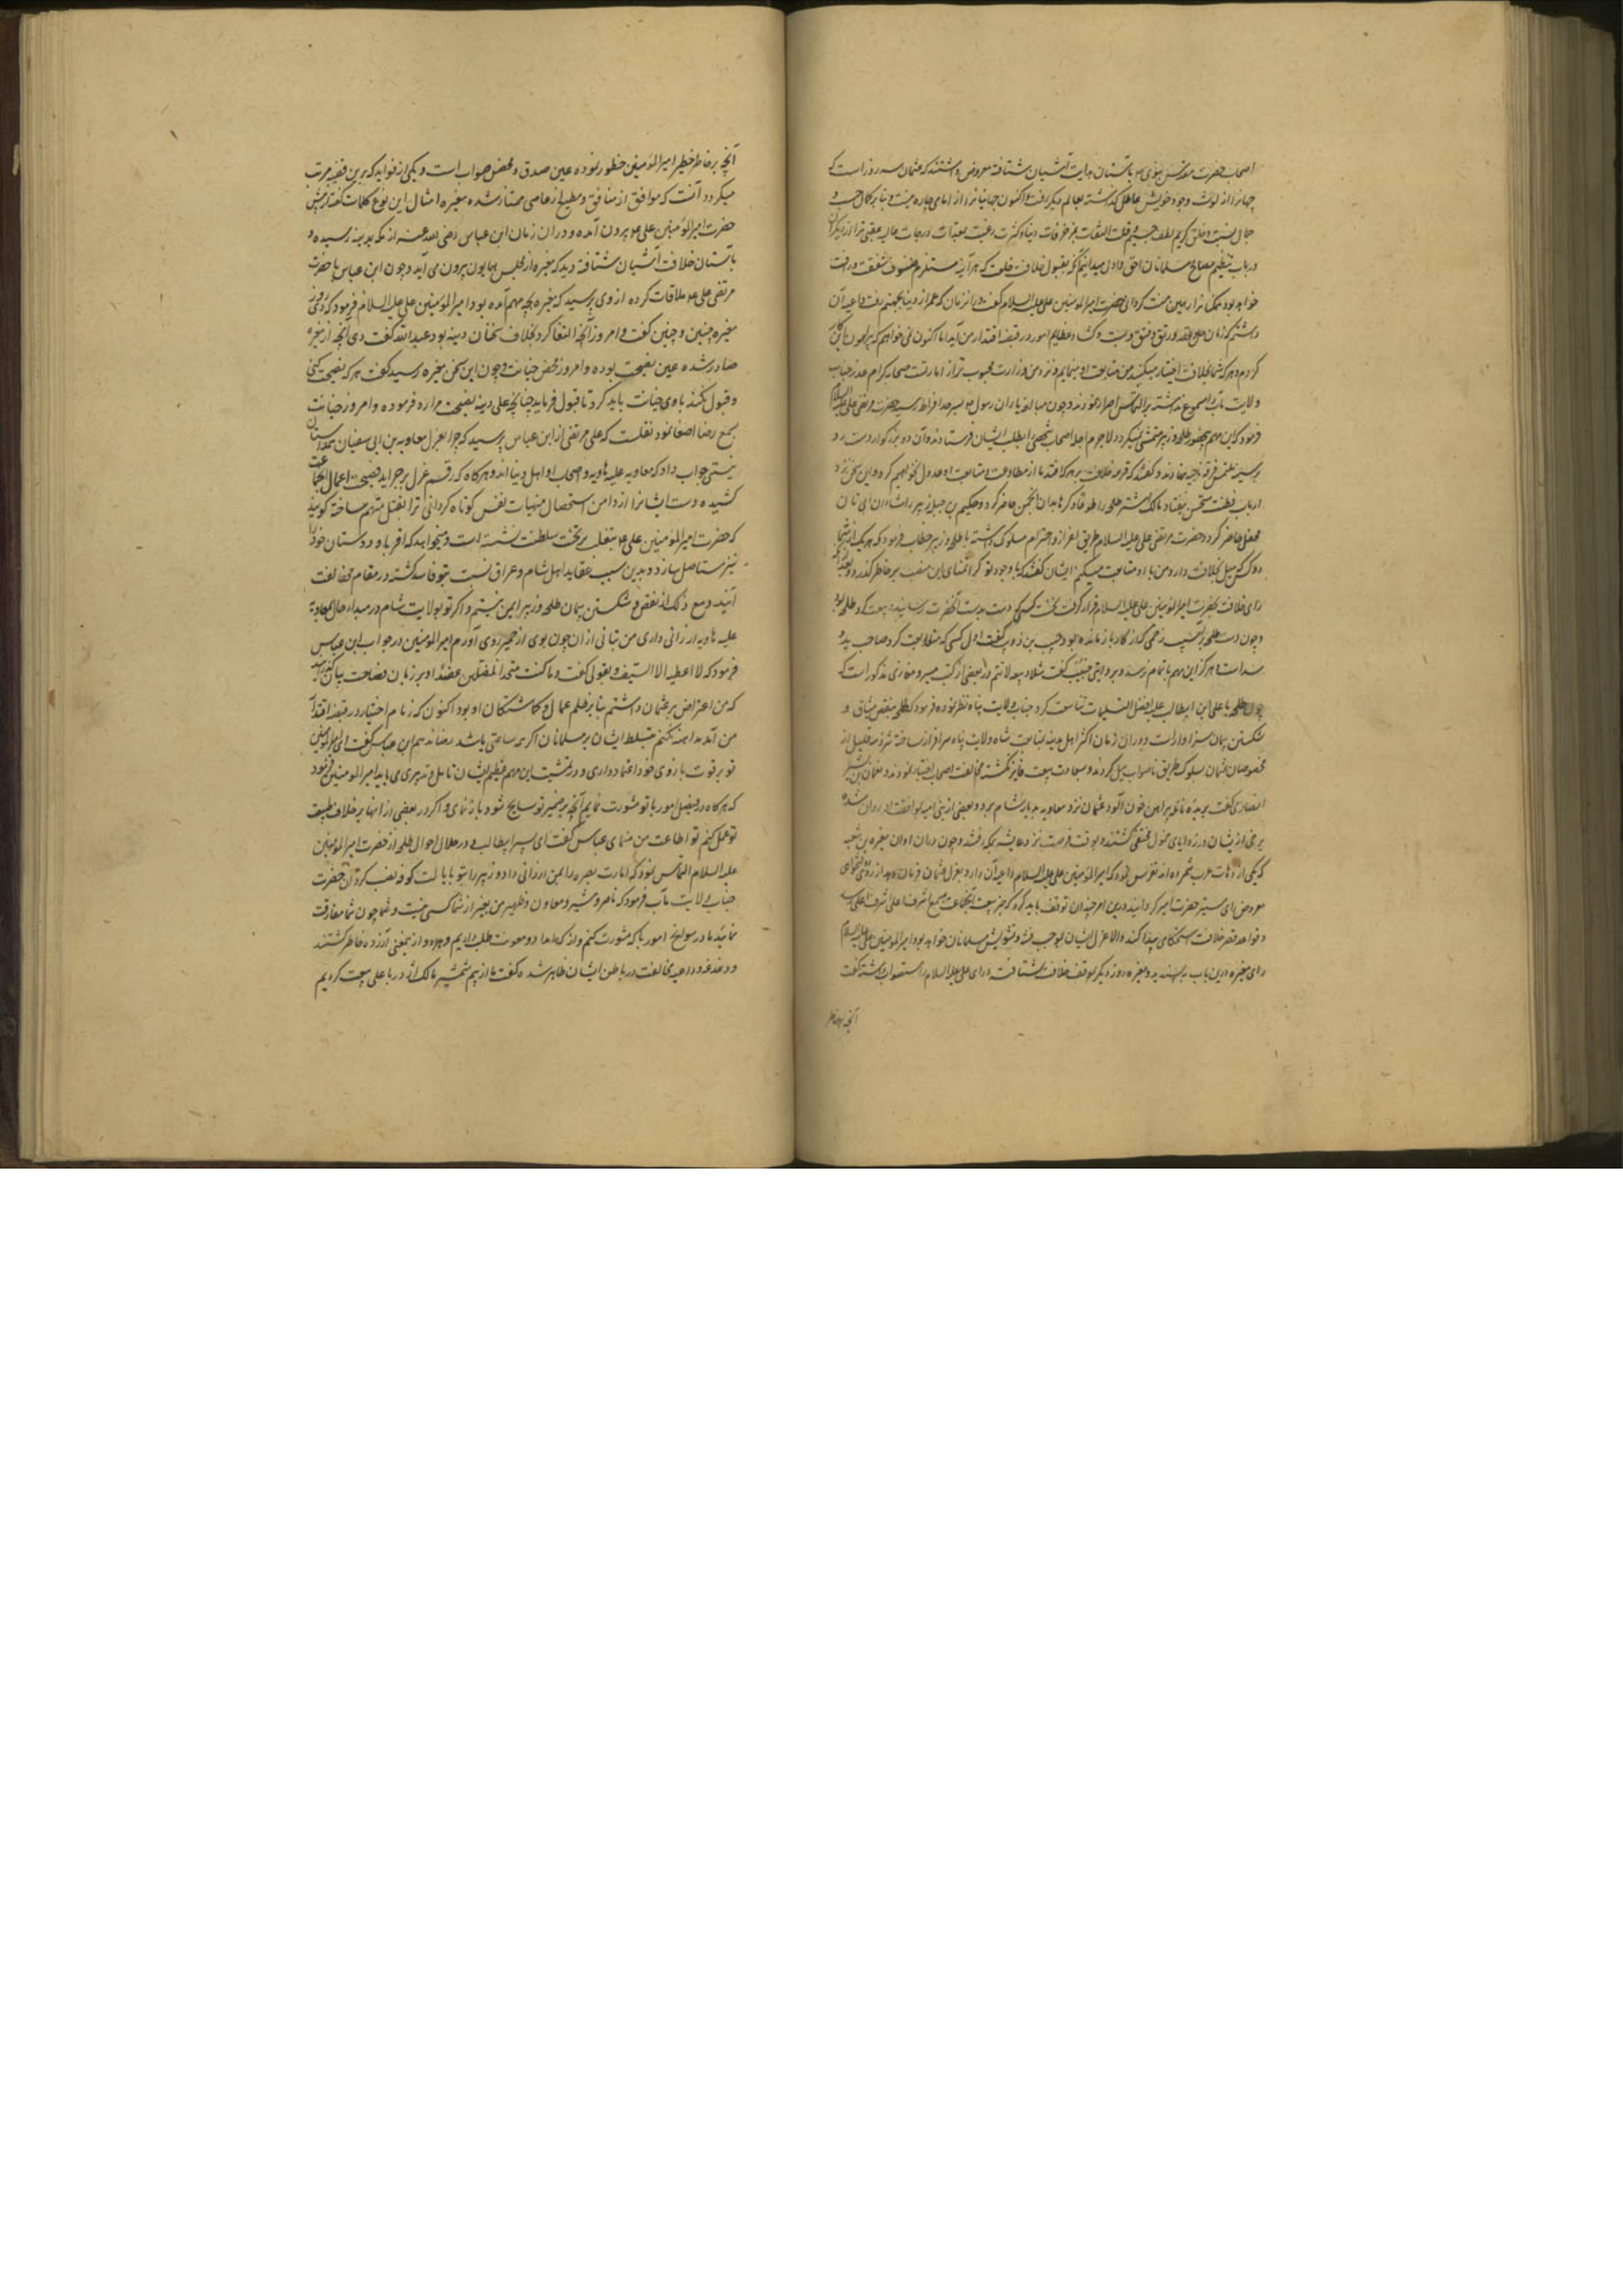 اصحاب حضرت مقدس نبوی بآستان هدایت آشیان شتافته معروض داشتند که عثمان سه روز است که
جهانرا از لوث وجود خویش عاطل گذاشته بعالم دیگر رفت و اکنون جهانیانرا از امامی چاره نیست و بنابر کمال حسب و
جمال نسبت و خلق کریم و لطف جسیم و قلت التفات بمزخرفات دنیا و کثرت رغبت بمعدات درجات عالیه عقبی ترا از دیگران
در باب تنظیم مصالح مسلمانان احق و اولی میدانیم
خواهد بود حضرت امیر المومنین علی علیه السلام گفت در آنزمان که عمر از دنیا رفت داعیه آن
داشتم که زمان حل و عقد و رتق و فتق و بست و گشاد عظایم امور در قبضه اقتدار من آید اما اکنون نمی خواهم که پیرامون این کار
گردم و هر که شما بخلافت اختیار میکنید من متابعت او مینمایم و نزد من وزارت محبوب تر از امارتست صحابه کرام عذر جناب
ولایت مآب را مسموع نداشته بر التماس اصرار نمودند و چون مبالغه یاران رسول بسرحد افراط رسید حضرت مرتضی علی علیه السلام
فرمود که این مهم بحضور طلحه و زبیر متمشی نمیگردد لاجرم اجله اصحاب شخصی را بطلب ایشان فرستادند و آن دو بزرگوار دست رد
بر سینه ملتمس فرقه ناجیه نهادند و گفتند که قرعه خلافت بر هر که افتد ما از مطاوعت و متابعت او عدول نخواهیم کرد و این سخن نزد
ارباب فطنت مستحسن نیفتاد مالک اشتر طلحه را طوعا و کرها بدان انجمن حاضر کرد و حکیم بن جبله زبیر را
محفل حاضر کرد و حضرت مرتضی علی علیه السلام طریق اعزاز و احترام مسلوک داشته با طلحه و زبیر خطاب فرمود که هر یک از شما
دو کس که میل بخلافت دارد من با او متابعت میکنم ایشان گفتند که با وجود تو کرا تمنای این منصب بر خاطر گذرد
رای خلافت بحضرت امیر المومنین علی علیه السلام قرار گرفت نخست کسی که دست بدست آنحضرت رسانید و بیعت کرد طلحه بود
و چون دست طلحه بآسیب زخمی که از کار باز مانده بود حبیب بن ذویب گفت اول کسی که متابعت کرد صاحب ید
شلاست هرگز این مهم باتمام نرسد و بروایتی حبیب گفت شلاء بیعه لا تتم و در بعضی از کتب سیر و مغازی مذکور است که
چون طلحه با علی ابن ابیطالب علیه افضل التسلیمات بیعت کرد جناب ولایت پناه فرمود که طلحه بنقض میثاق و
شکستن پیمان سزاوارست و در آن زمان اکثر اهل مدینه بمتابعت شاه ولایت پناه سرافراز شده شرذمه قلیل از
مخصوصان عثمان سلوک طریق ناصواب میل کردند و بسعادت بیعت فایز نگشته مخالفت اصحاب اختیار نمودند و نعمان بن بشیر
انصاری انگشت بریده نایله و پیراهن خون آلود عثمان نزد معاویه بدیار شام برد و بعضی از بنی امیه بموافقت او روان شده
برخی از ایشان در زوایای خمول مختفی گشتند و بوقت فرصت نزد عایشه بمکه رفتند و چون در آن اوان مغیره بن شعبه
که یکی از دهات عرب شمرده اند تفرس نمود که امیر المومنین علی علیه السلام داعیه آن دارد بعزل عمال عثمان فرمان دهد از روی نیکخواهی
معروض رای منیر حضرت امیر گردانید که درین امر چندان توقف باید کرد که خبر بیعت
و قواعد قصر خلافت استحکامی پیدا کند و الا عزل ایشان موجب فتنه و تشویش مسلمانان خواهد بود امیر المومنین علی علیه السلام
رای مغیره درین باب نپسندید و مغیره روز دیگر بموقف خلافت شتافته و رای علی علیه السلام را استصواب داشته گفت
آنچه بخاطر
آنچه بر خاطر خطیر امیر المؤمنین خطور نموده عین صدق و محض صوابست و یکی از فواید که برین قضیه مرتب
میگردد آنست که موافق از منافق و مطیع از عاصی ممتاز شده مغیره امثال این نوع کلمات گفته از پیش
حضرت امیر المومنین علی بیرون آمده و در آن زمان ابن عباس رضی الله عنه از مکه بمدینه رسیده و
بآستان خلافت آشیان شتافته دید که مغیره از مجلس همایون بیرون می آید و چون ابن عباس با حضرت
مرتضی علی ملاقات کرده از وی پرسید که مغیره بچه مهم آمده بود امیر المومنین علی علیه السلام فرمود که دی روز
مغیره چنین و چنین گفت و امروز آنچه القا کرد بخلاف سخنان دینه بود عبدالله گفت دی آنچه از مغیره
صادر شده عین نصیحت بوده و امروز محض خیانت و چون این سخن بمغیره رسید گفت هر که نصیحت کنی
و قبول نکند با وی خیانت باید کرد تا قبول فرماید چنانچه علی دینه نصیحت مرا رد فرموده و امروز خیانت
بسمع رضا اصغا نمود نقلست که علی مرتضی از ابن عباس پرسید که چرا بعزل معاویه بن ابی سفیان همداستان
نیستی جواب داد که معاویه علیه هاویه و اصحاب او اهل دنیا اند و هرگاه که رقم عزل بر جراید فضیحت اعمال آنجماعت
کشیده دست ایشانرا از دامن استحصال منهیات نفس کوتاه گردانی ترا بقتل متهم ساخته گویند
که حضرت امیر المؤمنین علی بتغلب بر تخت سلطنت نشسته است و میخواهد که اقربا و دوستان خود را
نیز مستاصل سازد و بدین سبب عقاید اهل شام و عراق نسبت بتو فاسد گشته در مقام مخالفت
آیند و مع ذلک از نقض و شکستن پیمان طلحه و زبیر ایمن نیستم و اگر تو بولایت شام در مبداء حال بمعاویه
علیه هاویه ارزانی داری من بتانی از آن چون موی از خمیر بیرون آورم امیر المومنین در جواب ابن عباس
فرمود که لا اعطیه الا السیف و بقولی گفت و ما کنت متخذ المضلین عضدا و بر زبان فصاحت بیان گذرانید
که من اعتراض بر عثمان داشتم بنابر ظلم عمال و گماشتگان او بود اکنون که زمام اختیار در قبضه اقتدار
من آمد مداهنه نکنم بتسلط ایشان بر مسلمانان اگر چه ساعتی باشد رضا ندهم ابن عباس گفت ای امیر المومنین
تو بر قوت بازوی خود اعتماد داری و در تمشیت این مهم عظیم الشان تامل و تدبیری می باید امیر المومنین فرمود
که هرگاه در فیصل امور با تو مشورت نمایم آنچه بر ضمیر تو سانح شود بازنمای و اگر در بعضی از آنها بر خلاف طبیعت
تو عمل کنم تو اطاعت من نمای عباس گفت ای پسر ابیطالب و در خلال احوال طلحه از حضرت امیر المؤمنین
علیه السلام التماس نمود که امارت بصره را بمن ارزانی دار و زبیر را بتو با یالت کوفه نصب کردن حضرت
جناب ولایت مآب فرمود که ناصر و مشیر و معاون و ظهیر من بغیر از شما کسی نیست و شما چون مفارقت
نمایید ما در سوانح امور با که مشورت کنم و از که امداد و معونت طلب داریم و هر دو از معنی آزرده خاطر گشتند
و دغدغه و داعیه مخالفت در باطن ایشان ظاهر شده گفت ما از بیم شمشیر مالک اشتر با علی بیعت کردیم